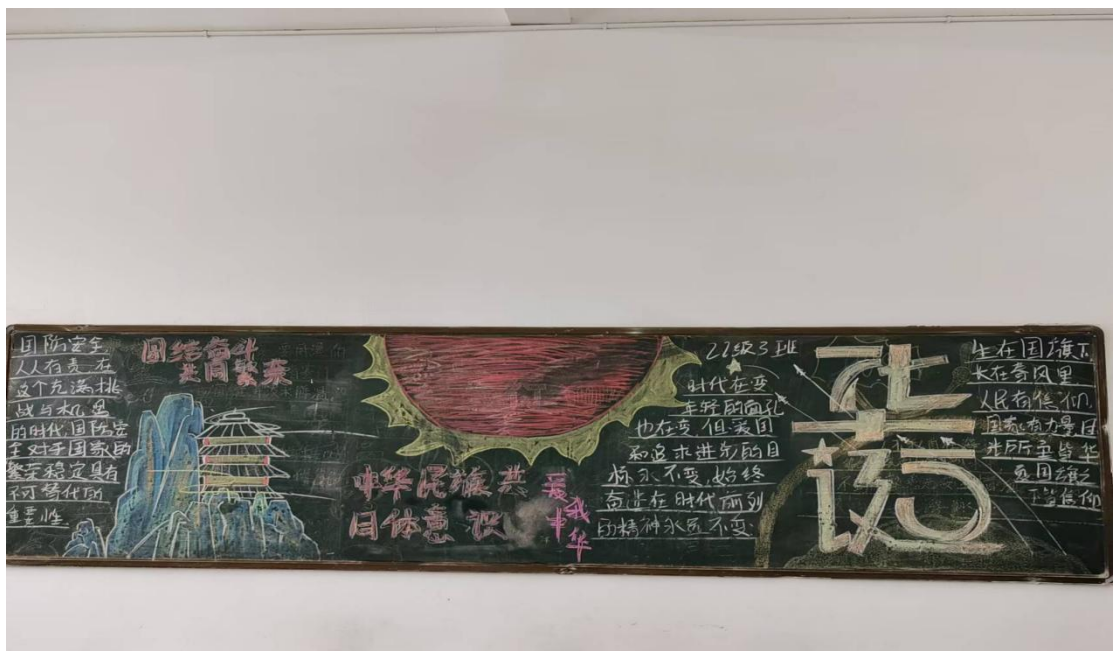 国防安全
人人有责 在
这个充满挑
战与机遇
的时代国防安
全对于国家的
繁荣稳定具有
不可替代的
重要性
团结奋斗
共同繁荣
中华民族共
同体意识
爱我中华
22级3班
时代在变
年轻的面孔
也在变,但爱国
和追求进步的目
标永不变,始终
奋进在时代前列
的精神永远不变.
生在国旗下
长在春风里
人民有信仰
国家有力量目
光所至皆华
夏